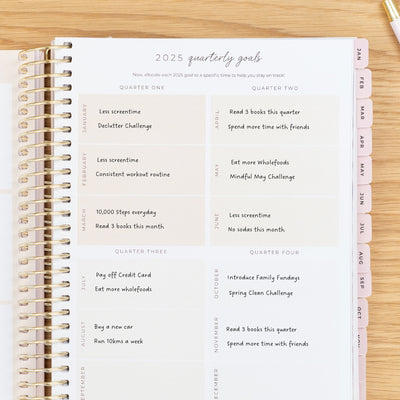 2025 quarterly goals
Now, allocate each 2025 goal to a specific time to help you stay on track!
QUARTER ONE
JANUARY
Less screentime
Declutter Challenge
FEBRUARY
Less screentime
Consistent workout routine
MARCH
10,000 Steps everyday
Read 3 books this month
QUARTER TWO
APRIL
Read 3 books this quarter
Spend more time with friends
MAY
Eat more Wholefoods
Mindful May Challenge
JUNE
Less screentime
No sodas this month
QUARTER THREE
JULY
Pay off Credit Card
Eat more wholefoods
AUGUST
Buy a new car
Run 10kms a week
SEPTEMBER
QUARTER FOUR
OCTOBER
Introduce Family Fundays
Spring Clean Challenge
NOVEMBER
Read 3 books this quarter
Spend more time with friends
DECEMBER
JAN
FEB
MAR
APR
MAY
JUN
JUL
AUG
SEP
OCT